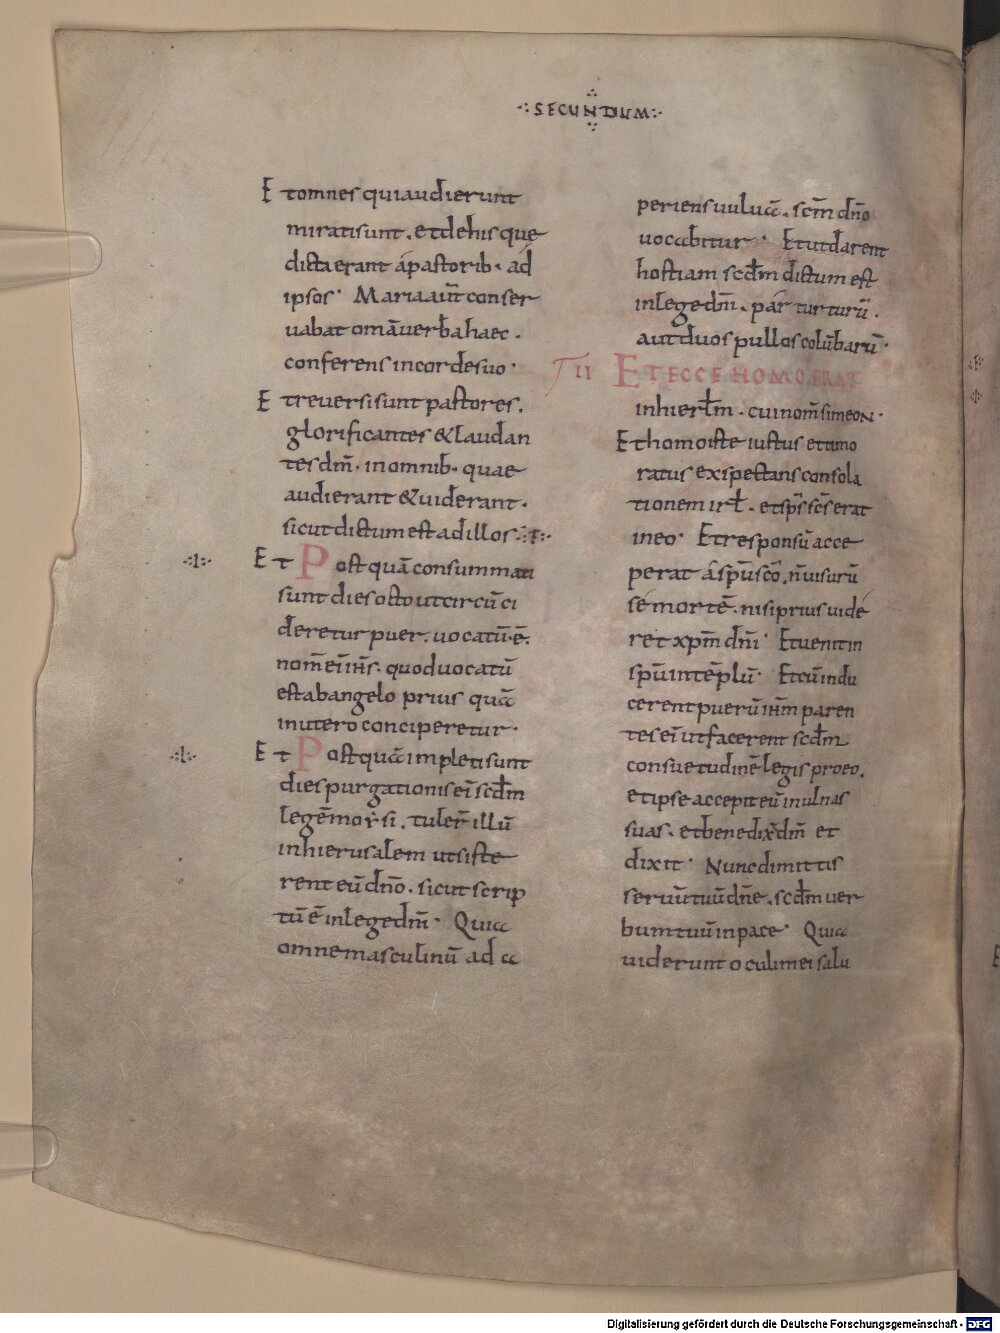 ·:SECUNDUM:·
Et omnes qui audierunt
mirati sunt. et de his quę
dicta erant a pastorib· ad
ipsos· Maria aut̄ conser
uabat om̄a uerba haec.
conferens in corde suo·
Et reuersi sunt pastores.
glorificantes & laudan
tes dm̄. in omnib· quae
audierant & uiderant.
sicut dictum est ad illos
·I· Et Post quā consummati
sunt dies octo ut circū ci
deretur puer. uocatū· ē·
nom̄ ei ih̄s. quod uocatū
est ab angelo prius quā
in utero conciperetur·
·I· Et Post quā impleti sunt
dies purgationis ei scd̄m
legē morsi. tuler̄ illū
in hierusalem ut siste
rent eū dn̄o. sicut scrip
tū ē in lege dm̄· Quia
omne masculinū ad a
periens uuluā. scm̄ dn̄o
uocabitur· Et ut darent
hostiam scd̄m dictum est
in lege dm̄. par turturū.
aut duos pullos colūbarū·
II ET ECCE HOMO ERAT
in hierl̄m. cui nom̄ simeon·
Et homo iste iustus et timo
ratus exspectans consola
tionem irl̄. et sp̄s sc̄s erat
in eo· Et responsū acce
perat a sp̄u sc̄o. n̄ uisurū
se mortē. nisi prius uide
ret xp̄m dn̄i· Et uenit in
sp̄u in tēplū· Et cū indu
cerent puerū ih̄m paren
tes ei ut facerent scd̄m
consuetudinē legis pro eo.
et ipse accepit eū in ulnas
suas. et benedix̄ dm̄ et
dixit· Nunc dimittis
seruū tuū dn̄e. scd̄m uer
bum tuū in pace· Quia
uiderunt oculi mei salu
Digitalisierung gefördert durch die Deutsche Forschungsgemeinschaft - DFG